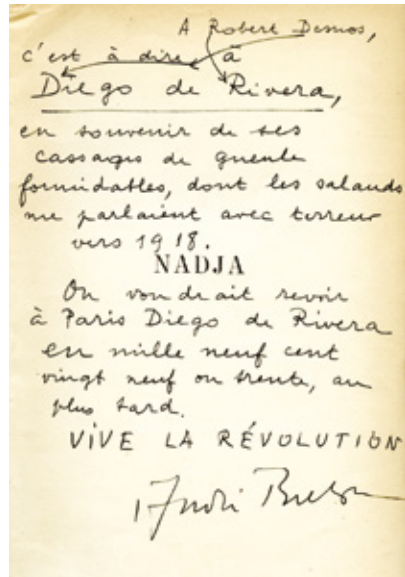 A Robert Desnos,
c'est à dire à
Diego de Rivera,
en souvenir de ses
cassages de gueule
formidables, dont les salauds
me parlaient avec terreur
vers 1918.
NADJA
On voudrait revoir
à Paris Diego de Rivera
en mille neuf cent
vingt neuf ou trente, au
plus tard.
VIVE LA RÉVOLUTION
André Breton